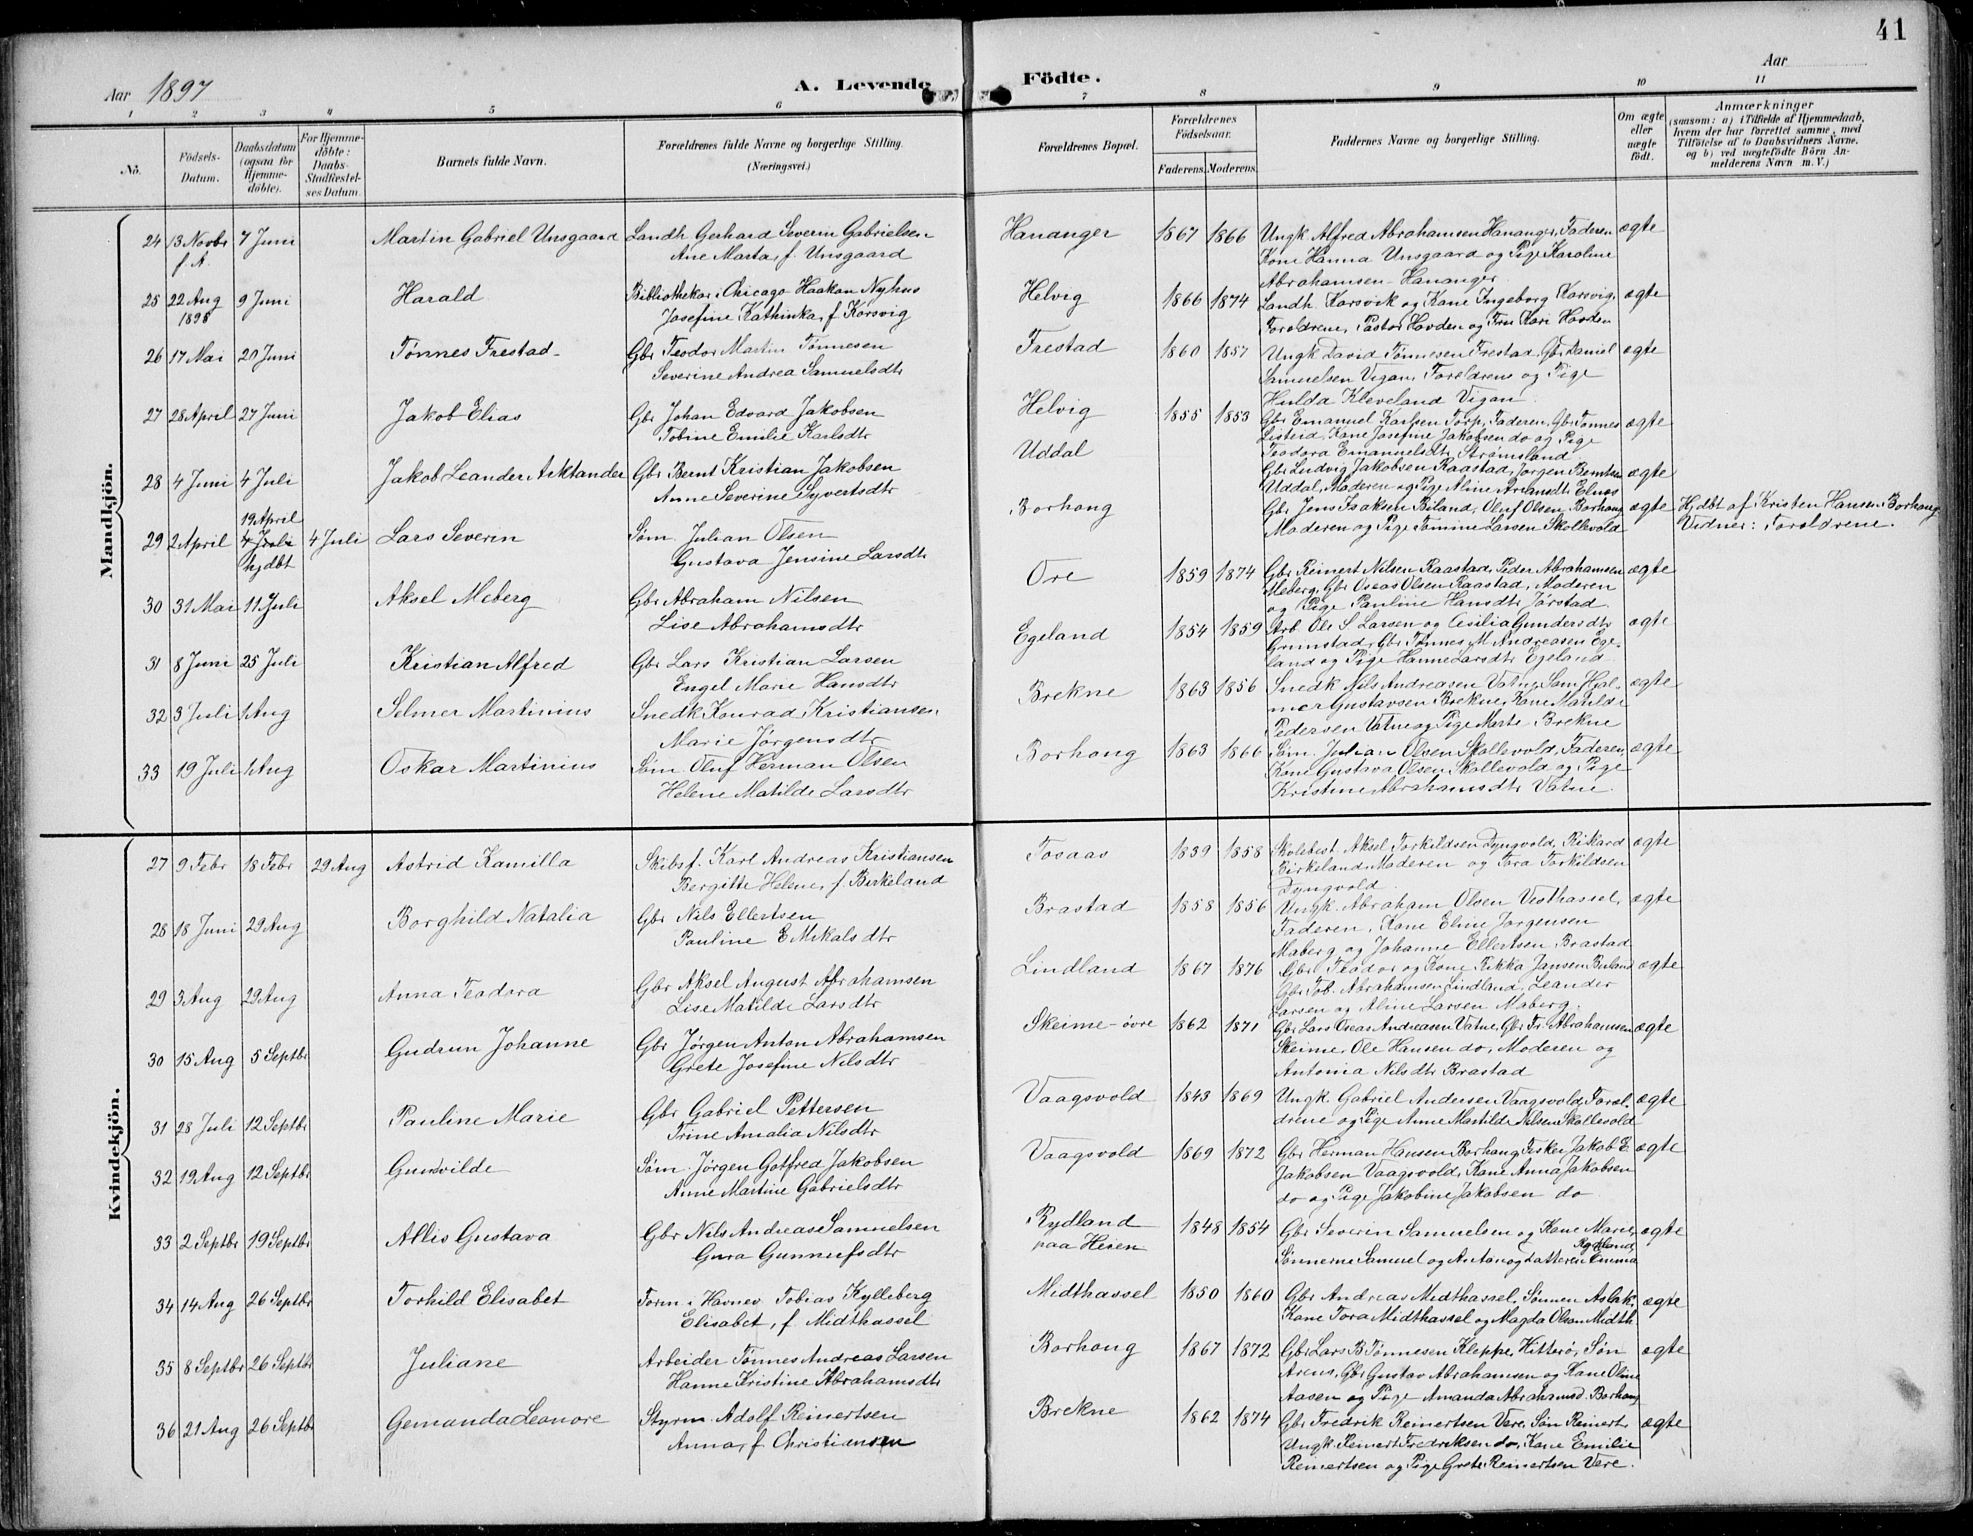 41
Aar 1897
A. Levende Fødte.
Aar
1 2 3 4 5 6 7 8 9 10 11
No.
Födsels-Datum.
Daabsdatum (ogsaa for Hjemmedöbte).
For Hjemmedöbte: Daabs-Stadfestelses Datum.
Barnets fulde Navn.
Forældrenes fulde Navne og borgerlige Stilling. (Næringsvei.)
Forældrenes Bopæl.
Forældrenes Födselsaar.
Faderens. Moderens.
Faddernes Navne og borgerlige Stilling.
Om ægte eller uægte født.
Anmærkninger
(saasom: a) i Tilfælde af Hjemmedaab, hvem der har forrettet samme, med Tilföielse af to Daabsvidners Navne, og b) ved uægtefödte Börn Anmelderens Navn m. V.)
Mandkjön.
24 13 Novbr f.A. 7 Juni Martin Gabriel Unsgaard Landh. Gerhard Severin Gabrielsen Hananger 1867 1866 Ungk Alfred Abrahamsen Hananger, Faderen ægte
Ane Marta, f. Unsgaard Kone Hanna Unsgaard og Pige Karoline
Abrahamsen - Hananger
25 22 Aug 1896 9 Juni Harald Bibliothekar i Chicago Haakon Nyhus Helvig 1866 1874 Landh. Korsvik og Kone Ingeborg Korsvig, ægte
Josefine Kathinka, f Korsvig Foreldrene, Pastor Hovden og Fru Kari Hovden
26 17 Mai 20 Juni Tønnes Frestad Gbr Teodor Martin Tønnesen Frestad 1860 1857 Ungk David Tønnesen Frestad, Gbr Daniel ægte
Severine Andrea Samuelsdtr Samuelsen Vigan, Foreldrene og Pige
Hulda Kleveland Vigan
27 28 April 27 Juni Jakob Elias Gbr Johan Edvard Jakobsen Helvig 1855 1853 Gbr Emanuel Karlsen Torp, Faderen, Gbr Tønnes ægte
Tobine Emilie Karlsdtr Listeid, Kone Josefine Jakobsen do og Pige
Teodora Emanuelsdtr Strømsland
28 4 Juni 4 Juli Jakob Leander Arktander Gbr Bernt Kristian Jakobsen Uddal Gbr Ludvig Jakobsen Raastad, Jørgen Berntsen ægte
Anne Severine Syvertsdtr Uddal, Moderen og Pige Aline Elnes
29 2 April 19 April 4 Juli hjdbt 4 Juli Lars Severin Søm. Julian Olsen Borhaug Gbr Jens Isaksen Biland, Oluf Olsen, Borhaug ægte Hjdbt af Kristen Hansen Borhaug
Gustava Jensine Larsdtr Moderen og Pige Tomine Larsen Skollevold Vidner: Foreldrene.
30 31 Mai 11 Juli Aksel Meberg Gbr Abraham Nilsen Ore 1859 1874 Gbr Reinert Nilsen Raastad, Peder Abrahamsen ægte
Lise Abrahamsdtr Meberg, Gbr Oseas Olsen Raastad, Moderen
og Pige Pauline Hansdtr Jørstad
31 8 Juni 25 Juli Kristian Alfred Gbr Lars Kristian Larsen Egeland 1854 1859 Arb Ole S Larsen og Cesilia Gundersdtr ægte
Engel Marie Hansdtr Grimstad, Gbr Tønnes M Andreasen Ege-
land og Pige Hanne Larsdtr Egeland
32 3 Juli 1 Aug Selmer Martinius Snedk Konrad Kristiansen Brekne 1863 1856 Snedk Nils Andreasen Vatne, Søm Hjal- ægte
Marie Jørgensdtr mer Gustavsen Brekne, Kone Matilde
Pedersen Vatne og Pige Marte Brekne
33 19 Juli 1 Aug Oskar Martinius Søm Oluf Herman Olsen Borhaug 1863 1866 Søm. Julian Olsen Skollevold, Faderen ægte
Helene Matilde Larsdtr Kone Gustava Olsen Skollevold og Pige
Kristine Abrahamsdtr Vatne.
Kvindekjön.
27 9 Febr 18 Febr 29 Aug Astrid Kamilla Skibsf. Karl Andreas Kristiansen Tosaas 1839 1858 Skolebest. Aksel Torkildsen Dyngvold, Rikard ægte
Bergitte Helene, f Birkeland Birkeland, Moderen og Tora Torkildsen
Dyngvold
28 18 Juni 29 Aug Borghild Natalia Gbr Nils Ellertsen Brastad 1858 1856 Ungk Abraham Olsen Vesthassel, ægte
Pauline E Mikalsdtr Faderen, Kone Eline Jørgensen
Maberg og Johanne Ellertsen Brastad
29 3 Aug 29 Aug Anna Teodora Gbr Aksel August Abrahamsen Lindland 1867 1876 Gbr Teodor og Kone Rikka Jansen Biland ægte
Lise Matilde Larsdtr Gbr Tob. Abrahamsen Lindland, Leander
Larsen og Aline Larsen Maberg.
30 15 Aug 5 Septbr Gudrun Johanne Gbr Jørgen Anton Abrahamsen Skeime-øvre 1862 1871 Gbr Lars Oseas Andreasen Vatne, Gbr Fr. Abrahamsen ægte
Grete Josefine Nilsdtr Skeime, Ole Hansen do, Moderen og
Antonia Nilsdtr Brastad
31 28 Juli 12 Septbr Pauline Marie Gbr Gabriel Pettersen Vaagsvold 1843 1869 Ungk. Gabriel Andersen Vaagsvold, Forel- ægte
Trine Amalia Nilsdtr drene og Pige Anne Martilde Nilsen Skollevold
32 19 Aug 12 Septbr Gunvilde Søm. Jørgen Gotfred Jakobsen Vaagsvold 1869 1872 Gbr Herman Hansen Borhaug, Fisker Jakob E ægte
Anne Martine Gabrielsdtr Jakobsen Vaagsvold, Kone Anna Jakobsen
do og Pige Jakobine Jakobsen do
33 2 Septbr 19 Septbr Allis Gustava Gbr Nils Andreas Samuelsen Rydland paa Heien 1848 1854 Gbr Severin Samuelsen og Kone Marie, Rydland, ægte
Gura Gunnufsdtr Sønnerne Samuel og Anton og Datteren Emma
34 14 Aug 26 Septbr Torhild Elisabet Form. i Havnev. Tobias Kylleberg Midthassel 1850 1860 Gbr Andreas Midthassel, Sønnen Aslak, ægte
Elisabet, f Midthassel Kone Tora Midthassel og Magda Olsen Midth.
35 8 Septbr 26 Septbr Juliane Arbeider Tønnes Andreas Larsen Borhaug 1867 1872 Gbr Lars B Tønnesen Kleppe, Hitterø, Søn ægte
Hanne Kristine Abrahamsdtr Arens, Gbr Gustav Abrahamsen og Kone Oline
Aasen og Pige Amanda Abrahamsd. Borhaug
36 21 Aug 26 Septbr Gemanda Leonore Styrm. Adolf Reinertsen Brekne 1862 1874 Gbr Fredrik Reinertsen Vere, Søn Reinert, ægte
Anna, f Christiansen Ungk. Reinert Fredriksen do, Kone Emilie
Reinertsen og Pige Grete Reinertsen Vere.